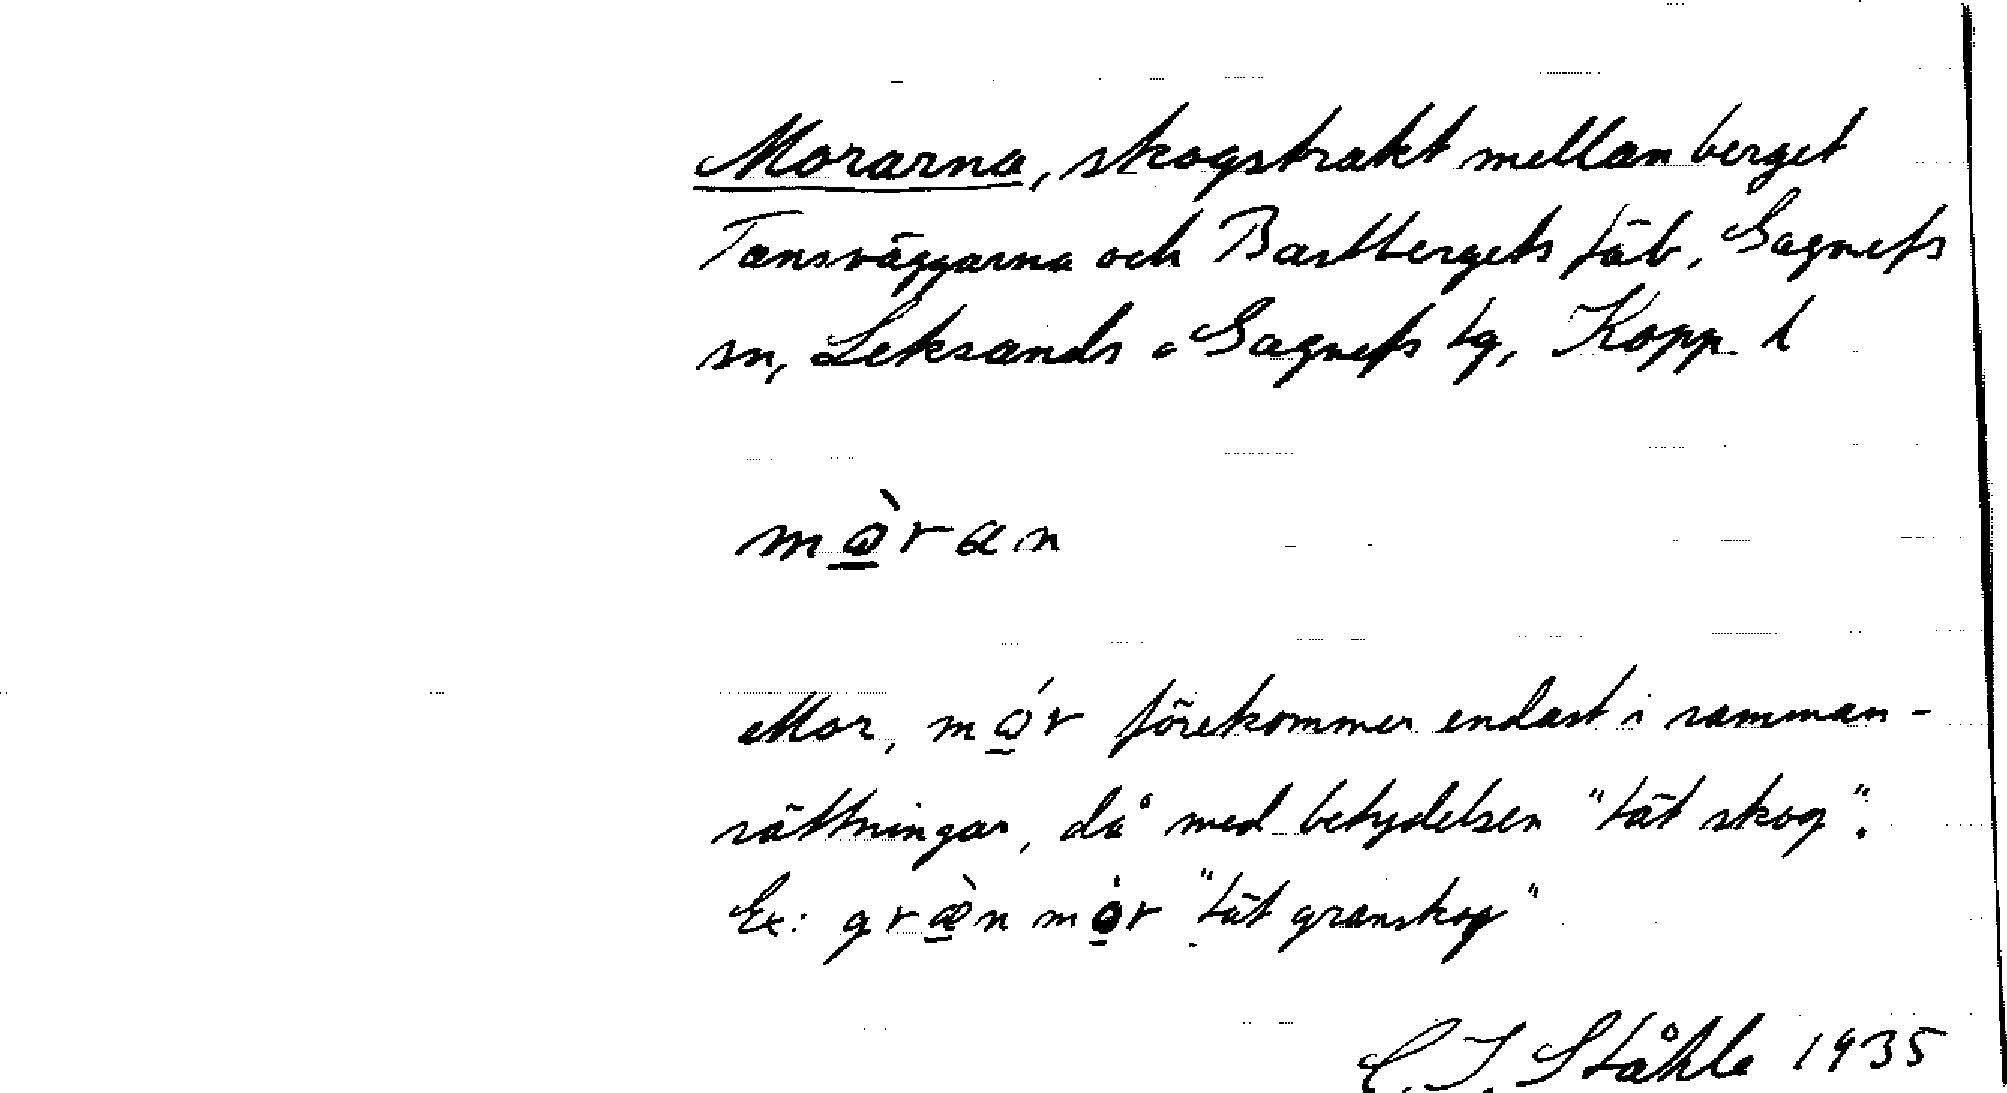 Morarna, skogstrakt mellan berget
Tansväggarna och Bastbergets fäb, Gagnefs
sn, Leksands o Gagnefs tg, Kopp l
mò̱ran
Mor, mó̱r förekommer endast i samman-
sättningar, då med betydelsen "tät skog".
Ex: græ̱̀n mò̱r "tät granskog"
C. I. Ståhle 1935